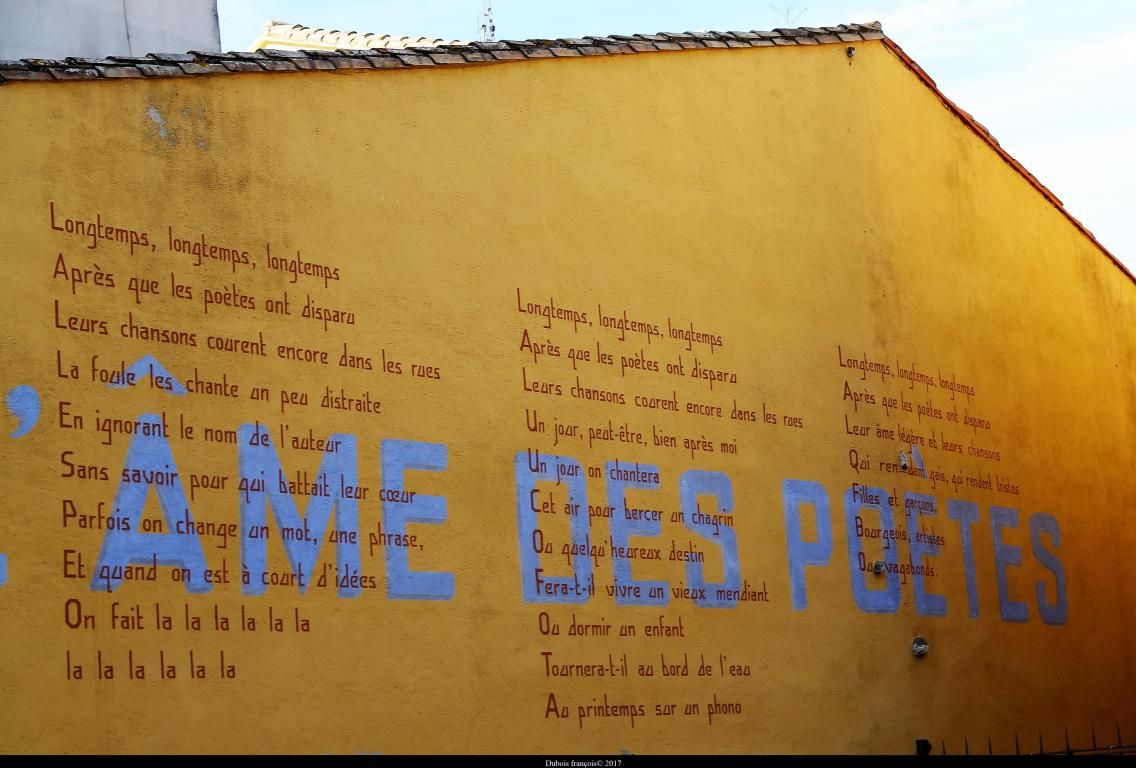 Longtemps, longtemps, longtemps
Après que les poètes ont disparu
Leurs chansons courent encore dans les rues
La foule les chante un peu distraite
En ignorant le nom de l'auteur
Sans savoir pour qui battait leur cœur
Parfois on change un mot, une phrase,
Et quand on est à court d'idées
On fait la la la la la la
la la la la la la
Longtemps, longtemps, longtemps
Après que les poètes ont disparu
Leurs chansons courent encore dans les rues
Un jour, peut-être, bien après moi
Un jour on chantera
Cet air pour bercer un chagrin
Ou quelqu'heureux destin
Fera-t-il vivre un vieux mendiant
Ou dormir un enfant
Tournera-t-il au bord de l'eau
Au printemps sur un phono
Longtemps, longtemps, longtemps
Après que les poètes ont disparu
Leur âme légère et leurs chansons
Qui rendent gais, qui rendent tristes
Filles et garçons,
Bourgeois, artistes
Ou vagabonds.
'ÂME DES POÈTES
Dubois françois© 2017